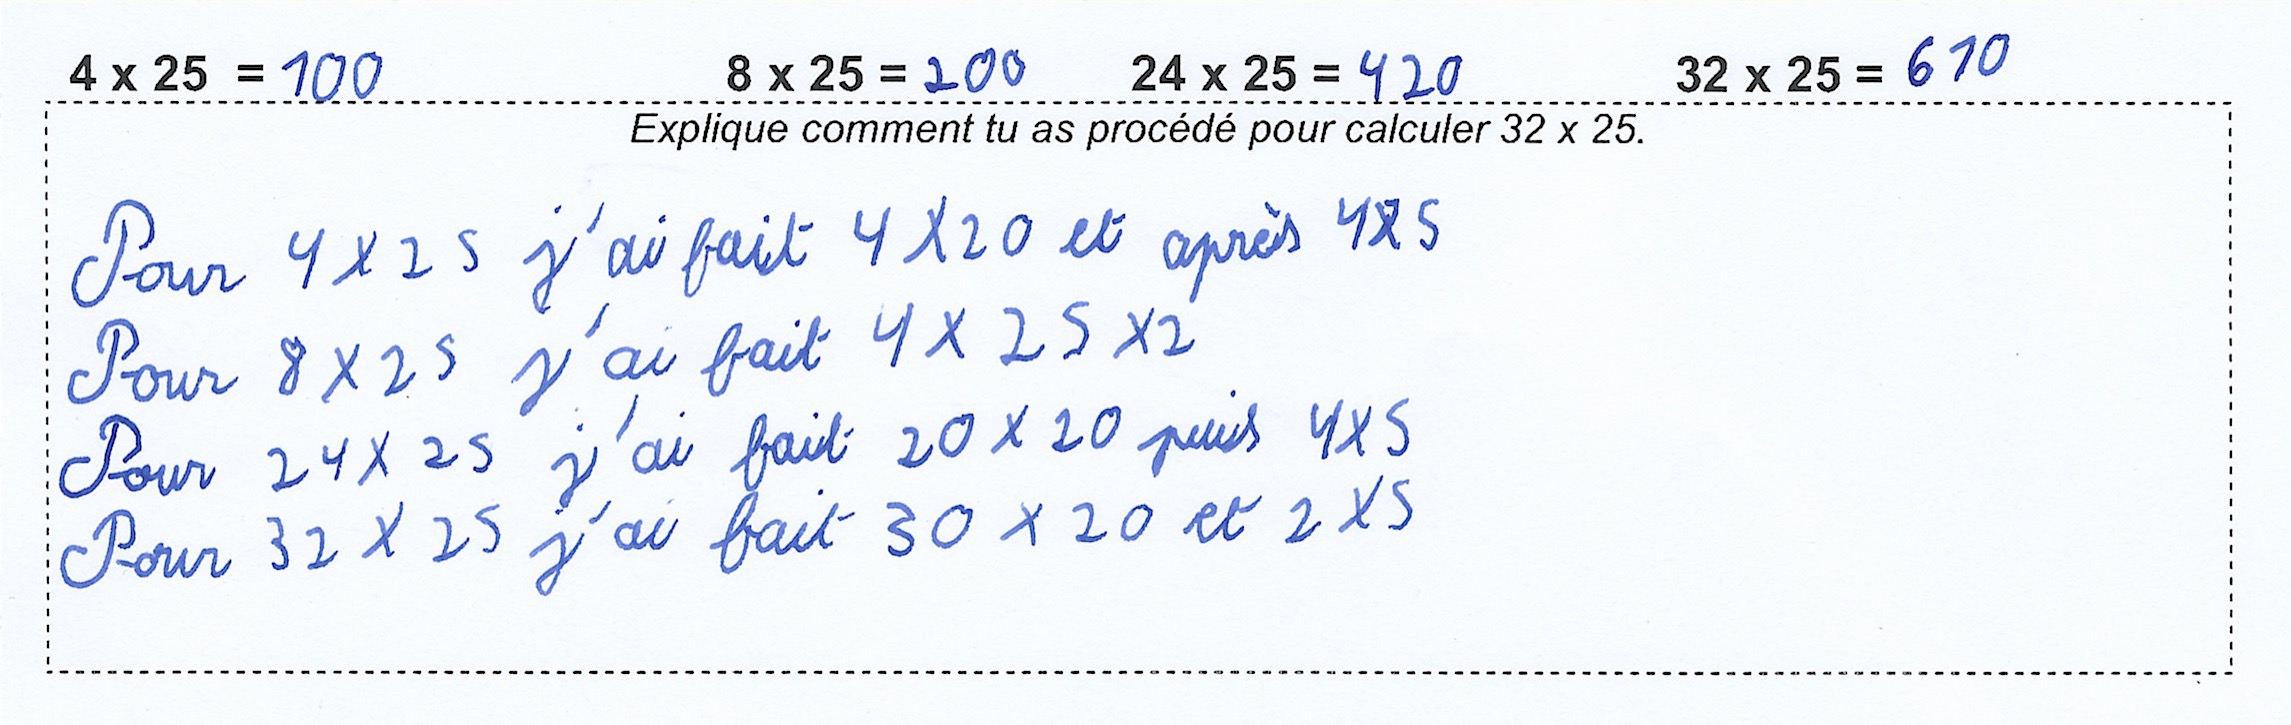 4 x 25 = 100 8 x 25 = 200 24 x 25 = 420 32 x 25 = 610
Explique comment tu as procédé pour calculer 32 x 25.
Pour 4 x 25 j'ai fait 4 x 20 et après 4 x 5
Pour 8 x 25 j'ai fait 4 x 25 x 2
Pour 24 x 25 j'ai fait 20 x 20 puis 4 x 5
Pour 32 x 25 j'ai fait 30 x 20 et 2 x 5